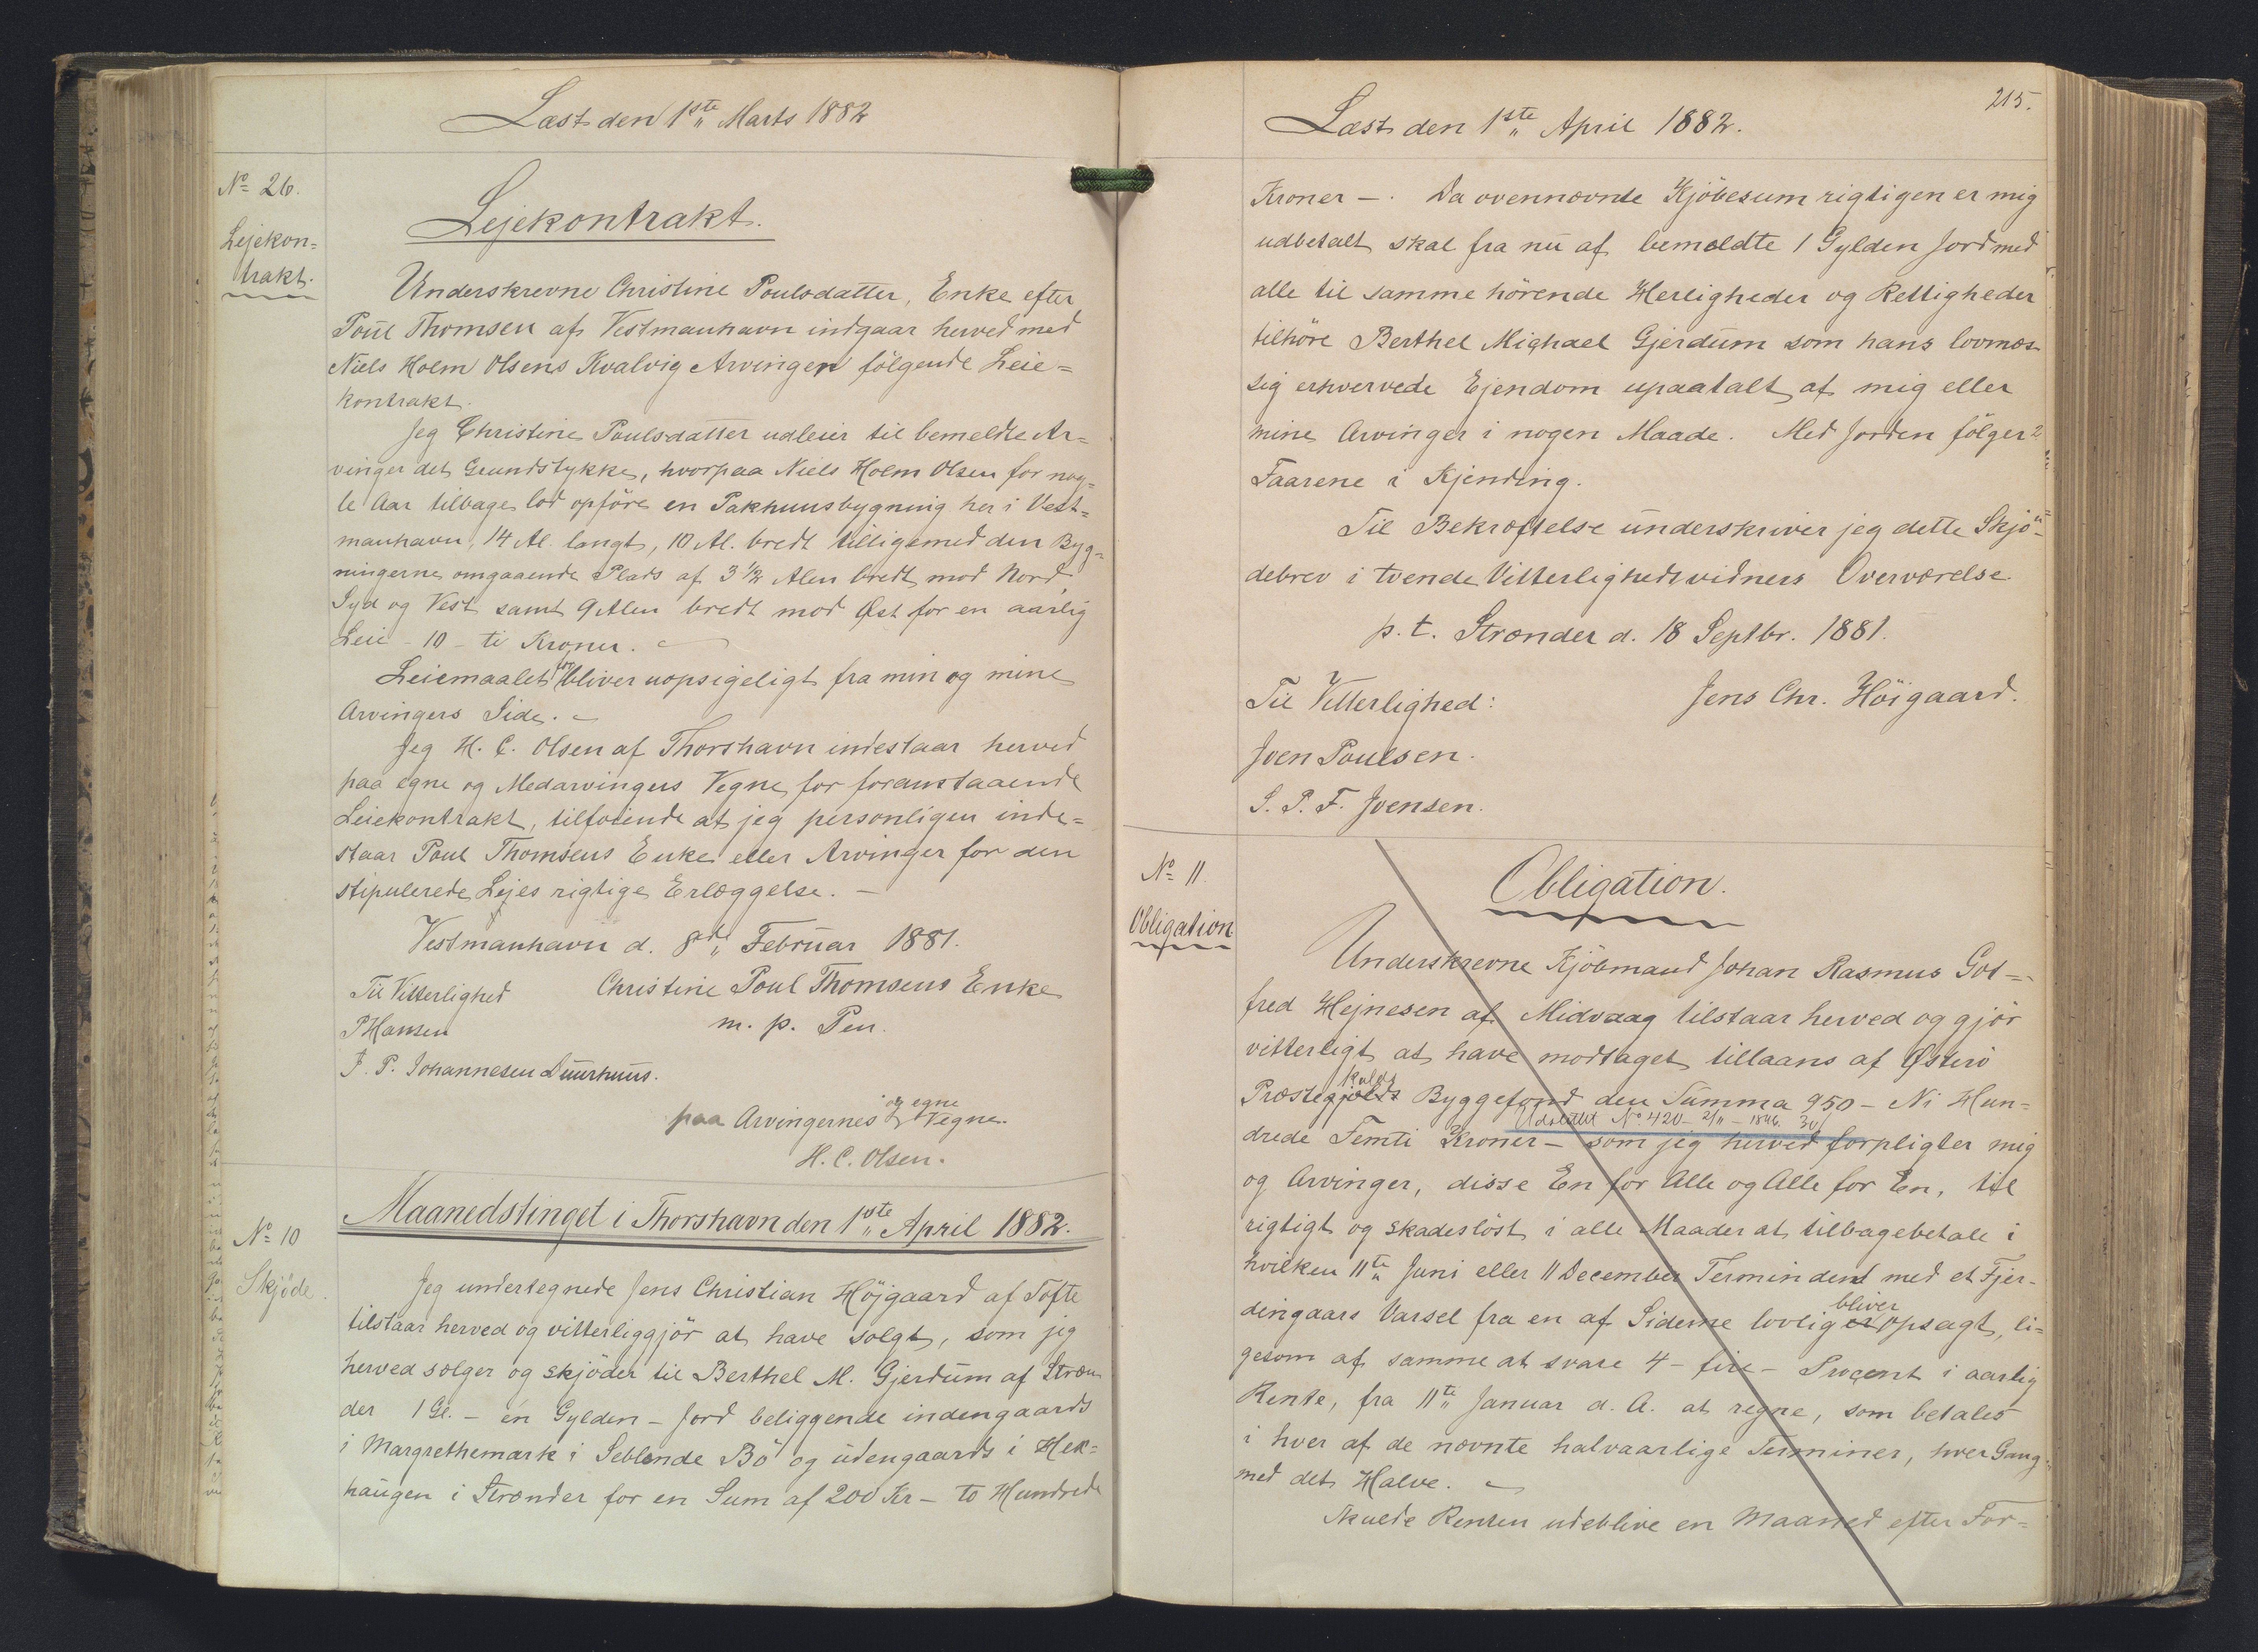 Læst den 1ste Marts 1882
No 26.
Lejekon=
trakt.
Lejekontrakt.
Underskrevne Christine Poulsdatter, Enke efter
Poul Thomsen af Vestmanhavn indgaar herved med
Niels Holm Olsens Kvalvig Arvinger følgende Leie=
kontrakt.
Jeg Christine Poulsdatter udleier til bemeldte Ar=
vinger det Grundstykke, hvorpaa Niels Holm Olsen for nog=
le Aar tilbage lod opföre en Pakhuusbygning her i Vest=
manhavn, 14 Al. langt, 10 Al. bredt tilligemed den Byg=
ningerne omgaaende Plads af 3 1/2 Alen bredt mod Nord
Syd og Vest samt 9 Alen bredt mod Øst for en aarlig
Leie - 10 - ti Kroner.
Leiemaalet bliver uopsigeligt fra min og mine
Arvingers Side. -
Jeg H. C. Olsen af Thorshavn indestaar herved
paa egne og Medarvingers Vegne for foranstaaende
Leiekontrakt, tilföiende at jeg personligen inde=
staar Poul Thomsens Enke eller Arvinger for den
stipulerede Lejes rigtige Erlæggelse. -
Vestmanhavn d. 8de Februar 1881.
Til Vitterlighed Christine Poul Thomsens Enke
PHansen m. p. Pen.
J. P. Johannesen Duurhuus.
og egne
paa Arvingernes Vegne.
H. C. Olsen.
Maanedstinget i Thorshavn den 1ste April 1882.
No 10
Skjöde.
Jeg undertegnede Jens Christian Höjgaard af Tofte
tilstaar herved og vitterliggjör at have solgt, som jeg
herved sælger og skjöder til Berthel M. Gjerdum af Stræn
der 1 Gl. - én Gylden - Jord beliggende indengaards
i Margrethemark i Seblende Bö og udengaards i Hek=
haugen i Strænder for en Sum af 200 Kr - to Hundrede
215.
Læst den 1ste April 1882.
Kroner -. Da ovennævnte Kjöbesum rigtigen er mig
udbetalt skal fra nu af bemeldte 1 Gylden Jord med
alle til samme hörende Herligheder og Rettigheder
tilhöre Berthel Michael Gjerdum som hans lovmæs
sig erhvervede Ejendom upaatalt af mig eller
mine Arvinger i nogen Maade. Med Jorden fölger 2
Faarene i Kjending.
Til Bekræftelse underskriver jeg dette Skjö=
debrev i tvende Vitterlighedsvidners Overværelse.
p. t. Strænder d. 18 Septbr. 1881.
Til Vitterlighed: Jens Chr. Höigaard.
Joen Poulsen.
S. P. F. Joensen.
No 11.
Obligation
Obligation.
Underskrevne Kjöbmand Johan Rasmus Got=
fred Hejnesen af Midvaag tilstaar herved og gjör
vitterligt at have modtaget tillaans af Österö
Kalds
Præstegjælds Byggefond den Summa 950 - Ni Hun=
Udslettet No 420 - 2/11 - 1896.
drede Femti Kroner - som jeg herved forpligter mig
og Arvinger, disse En for Alle og Alle for En, til
rigtigt og skadeslöst i alle Maader at tilbagebetale i
hvilken 11te Juni eller 11 December Termin den med et Fjer-
bliver
dingaars Varsel fra en af Siderne lovlig er opsagt, li=
gesom af samme at svare 4 - fire - Procent i aarlig
Rente, fra 11te Januar d. A. at regne, som betales
i hver af de nævnte halvaarlige Terminer, hver Gang
med det Halve.
Skulde Renten udeblive en Maaned efter For=